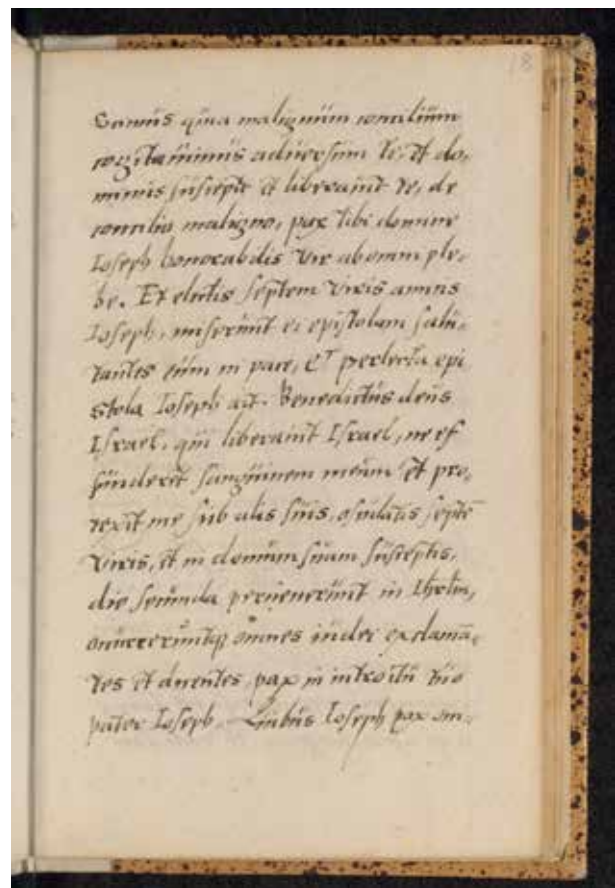 18
Samus quia malignum consilium
cogitauimus aduersum te, et do,
minus suscepit et liberauit te, de
consilio maligno, pax tibi domine
Ioseph honorabilis vir ab omni ple,
be. Et electis septem viris amicis
Ioseph, miserunt ei epistolam salu,
tantes eum in pace, et perlecta epi
stola Ioseph ait. Benedictus deus
Israel, qui liberauit Israel, ne ef
funderet sanguinem meum et pro,
texit me sub alis suis, osculatis septē
viris, et in domum suam susceptis,
die secunda peruenerunt in Ihrlm,
occurreruntq; omnes iudei exclamā,
tes et dicentes, pax in introitu tuo
pater Ioseph. Quibus Ioseph pax om,